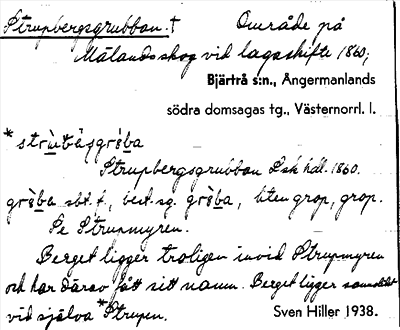 Strupbergsgrubban. † Område på
Mälands skog vid lagaskifte 1860;
Bjärtrå s:n., Ångermanlands
södra domsagas tg., Västernorrl. l.
Strupbergsgrubban Lsk hdl. 1860.
sbt. f., best. sg. liten grop, grop.
Se Strupmyren.
Berget ligger troligen invid Strupmyren
och har därav fått sitt namn. Berget ligger
vid själva *Strupen. Sven Hiller 1938.